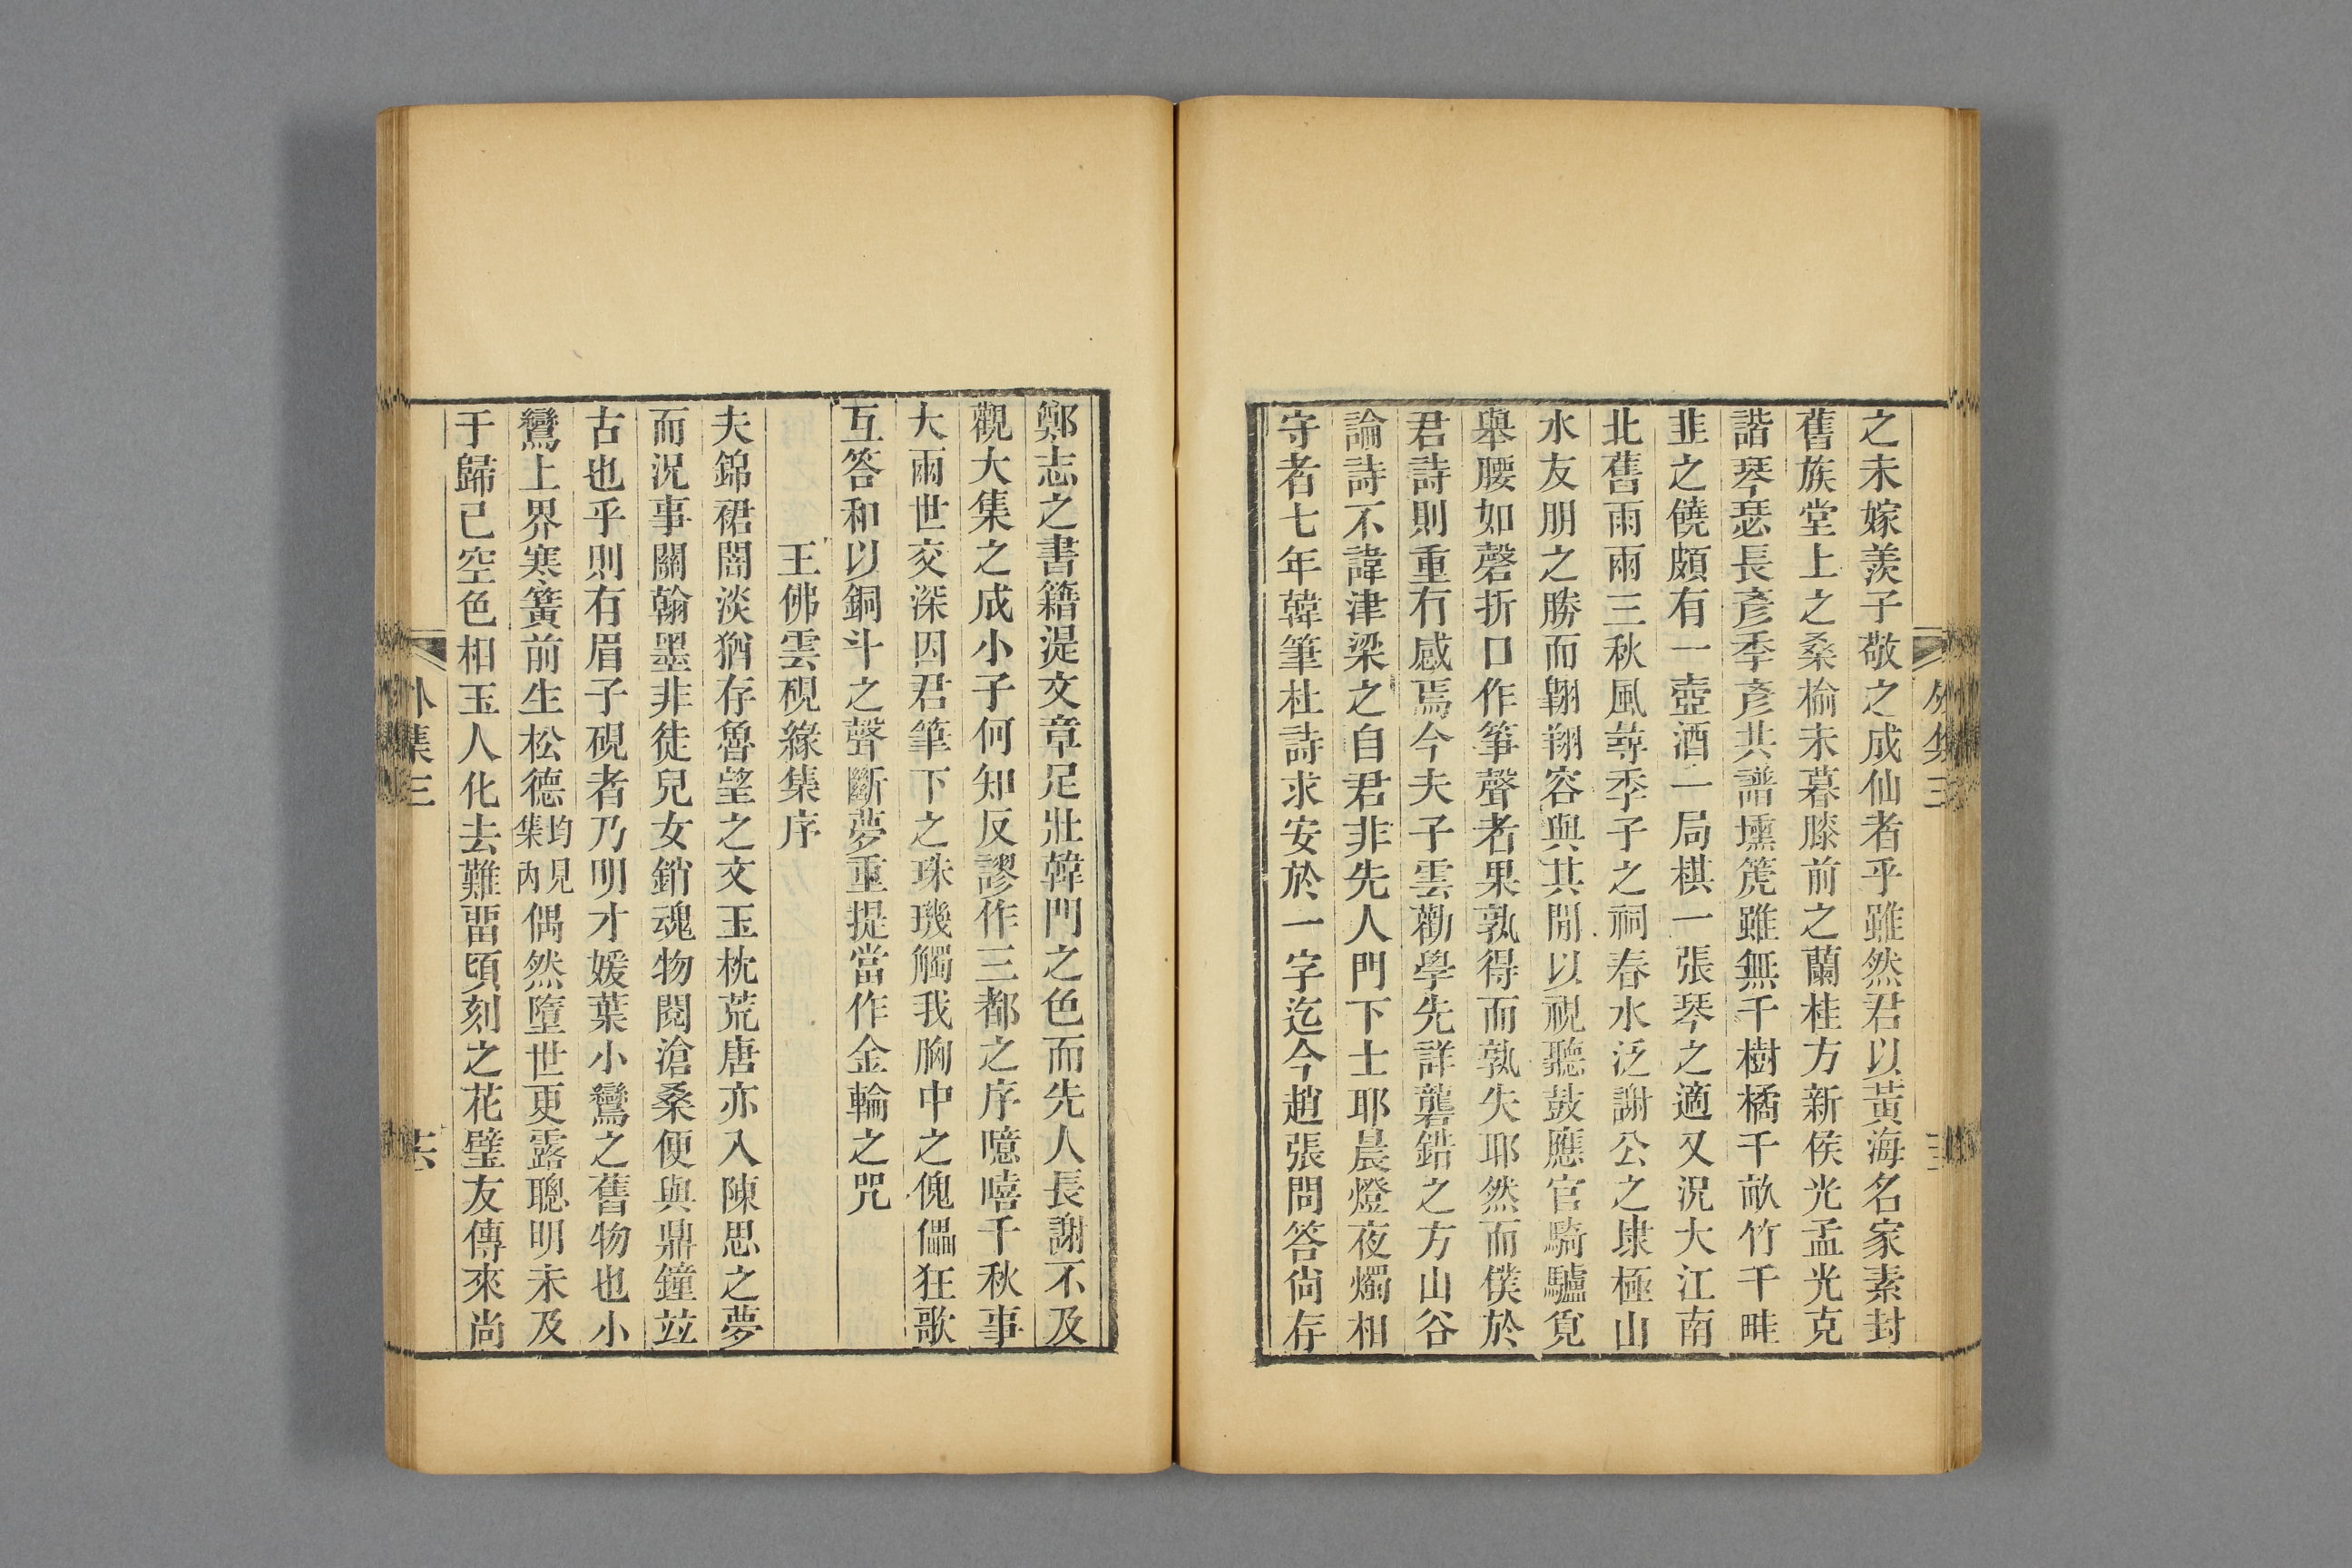 之未嫁羨子敬之成仙者乎雖然君以黃海名家素封
舊族堂上之桑榆未暮膝前之蘭桂方新侯光孟光克
諧琴瑟長彥季彥共譜壎篪雖無千樹橘千畝竹千畦
韭之饒頗有一壺酒一局棋一張琴之適又況大江南
北舊雨雨三秋風尋季子之祠春水泛謝公之埭極山
水友朋之勝而翺翔容與其閒以視聽鼓應官騎驢覓
舉腰如磬折口作箏聲者果孰得而孰失耶然而僕於
君詩則重有感焉今夫子雲勸學先詳礱錯之方山谷
論詩不諱津梁之自君非先人門下士耶晨燈夜燭相
守者七年韓筆杜詩求安於一字迄今趙張問答尙存
鄭志之書籍湜文章足壯韓門之色而先人長謝不及
觀大集之成小子何知反謬作三都之序噫嘻千秋事
大兩世交深因君筆下之珠璣觸我胸中之傀儡狂歌
互答和以銅斗之聲斷夢重提當作金輪之咒
王佛雲硯緣集序
夫錦裙闇淡猶存魯望之文玉枕荒唐亦入陳思之夢
而況事關翰墨非徒兒女銷魂物閱滄桑便與鼎鐘竝
古也乎則有眉子硯者乃明才媛葉小鸞之舊物也小
鸞上界寒簧前生松德均見集內偶然墮世更露聰明未及
于歸已空色相玉人化去難畱頃刻之花璧友傳來尚
外集三